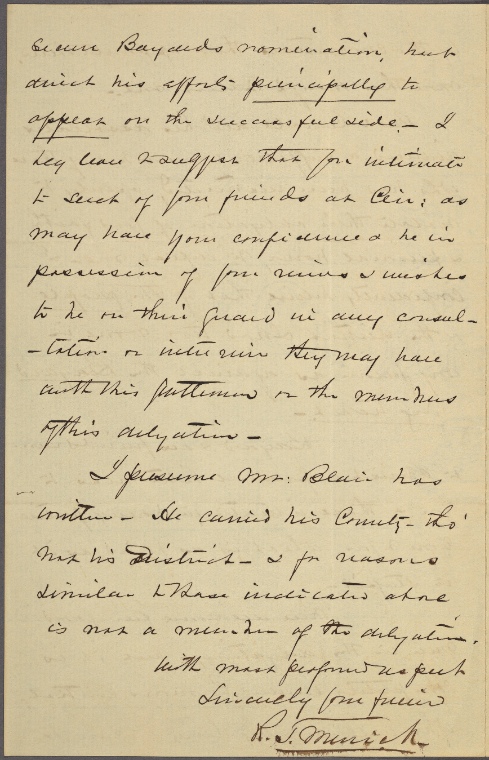 secure Bayards nomination, but
direct his efforts principally to
appear on the successful side. — I
beg leave to suggest that you intimate
to such of your friends at Cin: as
may have your confidence & be in
possession of your views & wishes
to be on their guard in any consul-
-tation or interview they may have
with this gentleman or the members
of this delegation —
I presume Mr: Blair has
written — He carried his County — tho'
not his District — & for reasons
similar to those indicated above
is not a member of the delegation.
With most profound respect
Sincerely your friend
R. T. Merrick